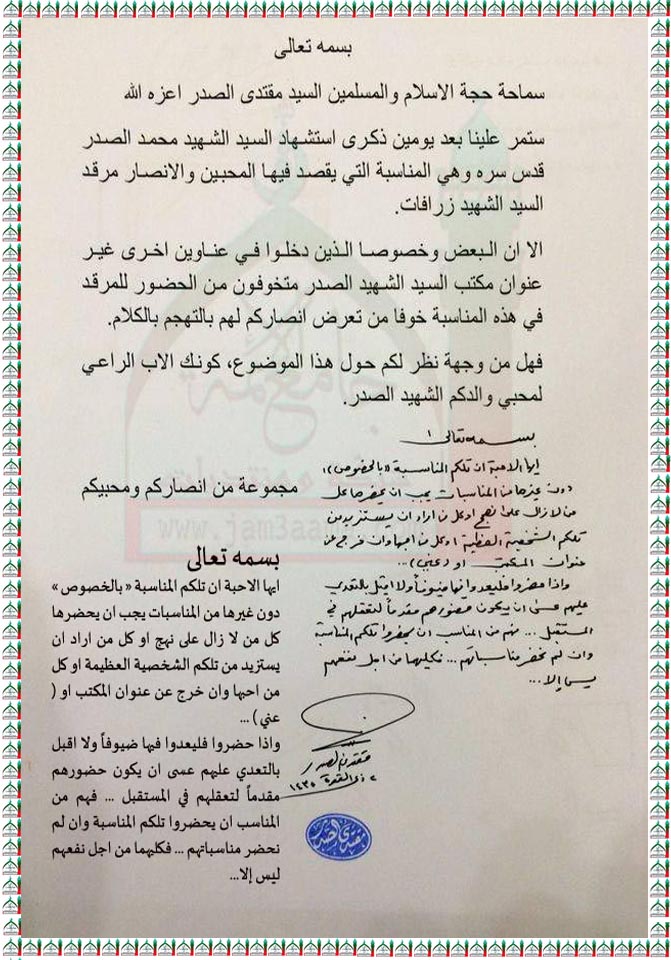 بسمه تعالى
سماحة حجة الاسلام والمسلمين السيد مقتدى الصدر اعزه الله
ستمر علينا بعد يومين ذكرى استشهاد السيد الشهيد محمد الصدر
قدس سره وهي المناسبة التي يقصد فيها المحبين والانصار مرقد
السيد الشهيد زرافات.
الا ان البعض وخصوصا الذين دخلوا في عناوين اخرى غير
عنوان مكتب السيد الشهيد الصدر متخوفون من الحضور للمرقد
في هذه المناسبة خوفا من تعرض انصاركم لهم بالتهجم بالكلام.
فهل من وجهة نظر لكم حول هذا الموضوع، كونك الاب الراعي
لمحبي والدكم الشهيد الصدر.
مجموعة من انصاركم ومحبيكم
بسمه تعالى
ايها الاحبة ان تلكم المناسبة «بالخصوص»
دون غيرها من المناسبات يجب ان يحضرها كل
من لا زال على نهج او كل من اراد ان يستزيد من
تلكم الشخصية العظيمة او كل من احبها وان خرج عن
عنوان المكتب او (عني)...
واذا حضروا فليعدوا فيها ضيوفاً ولا اقبل بالتعدي
عليهم عسى ان يكون حضورهم مقدماً لتعقلهم في
المستقبل ... فهم من المناسب ان يحضروا تلكم المناسبة
وان لم نحضر مناسباتهم ... فكليهما من اجل نفعهم
ليس إلا...
مقتدى الصدر
٢ ذي القعدة ١٤٣٥
مقتدى الصدر
بسمه تعالى
ايها الاحبة ان تلكم المناسبة «بالخصوص»
دون غيرها من المناسبات يجب ان يحضرها
كل من لا زال على نهج او كل من اراد ان
يستزيد من تلكم الشخصية العظيمة او كل
من احبها وان خرج عن عنوان المكتب او (
عني) ...
واذا حضروا فليعدوا فيها ضيوفاً ولا اقبل
بالتعدي عليهم عسى ان يكون حضورهم
مقدماً لتعقلهم في المستقبل ... فهم من
المناسب ان يحضروا تلكم المناسبة وان لم
نحضر مناسباتهم ... فكليهما من اجل نفعهم
ليس إلا...